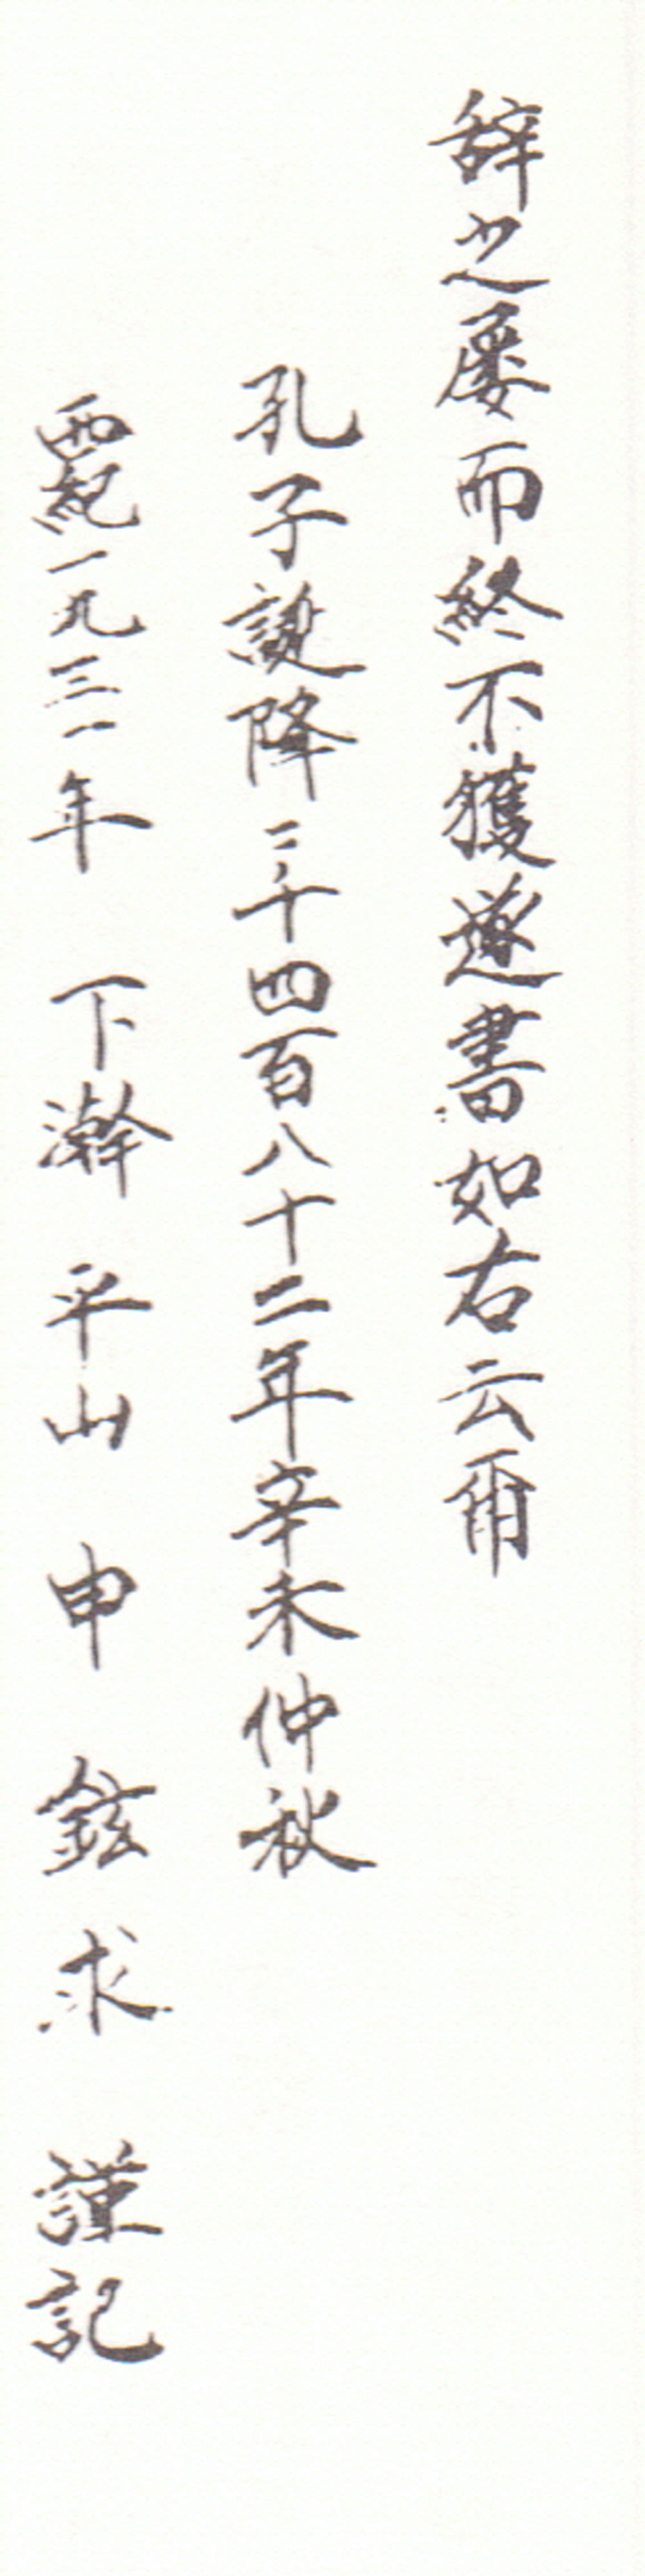 辞之屡而終不獲遂書如右云爾
孔子誕降二千四百八十二年辛未仲秋
西紀一九三一年 下澣 平山 申 鉉求 謹記